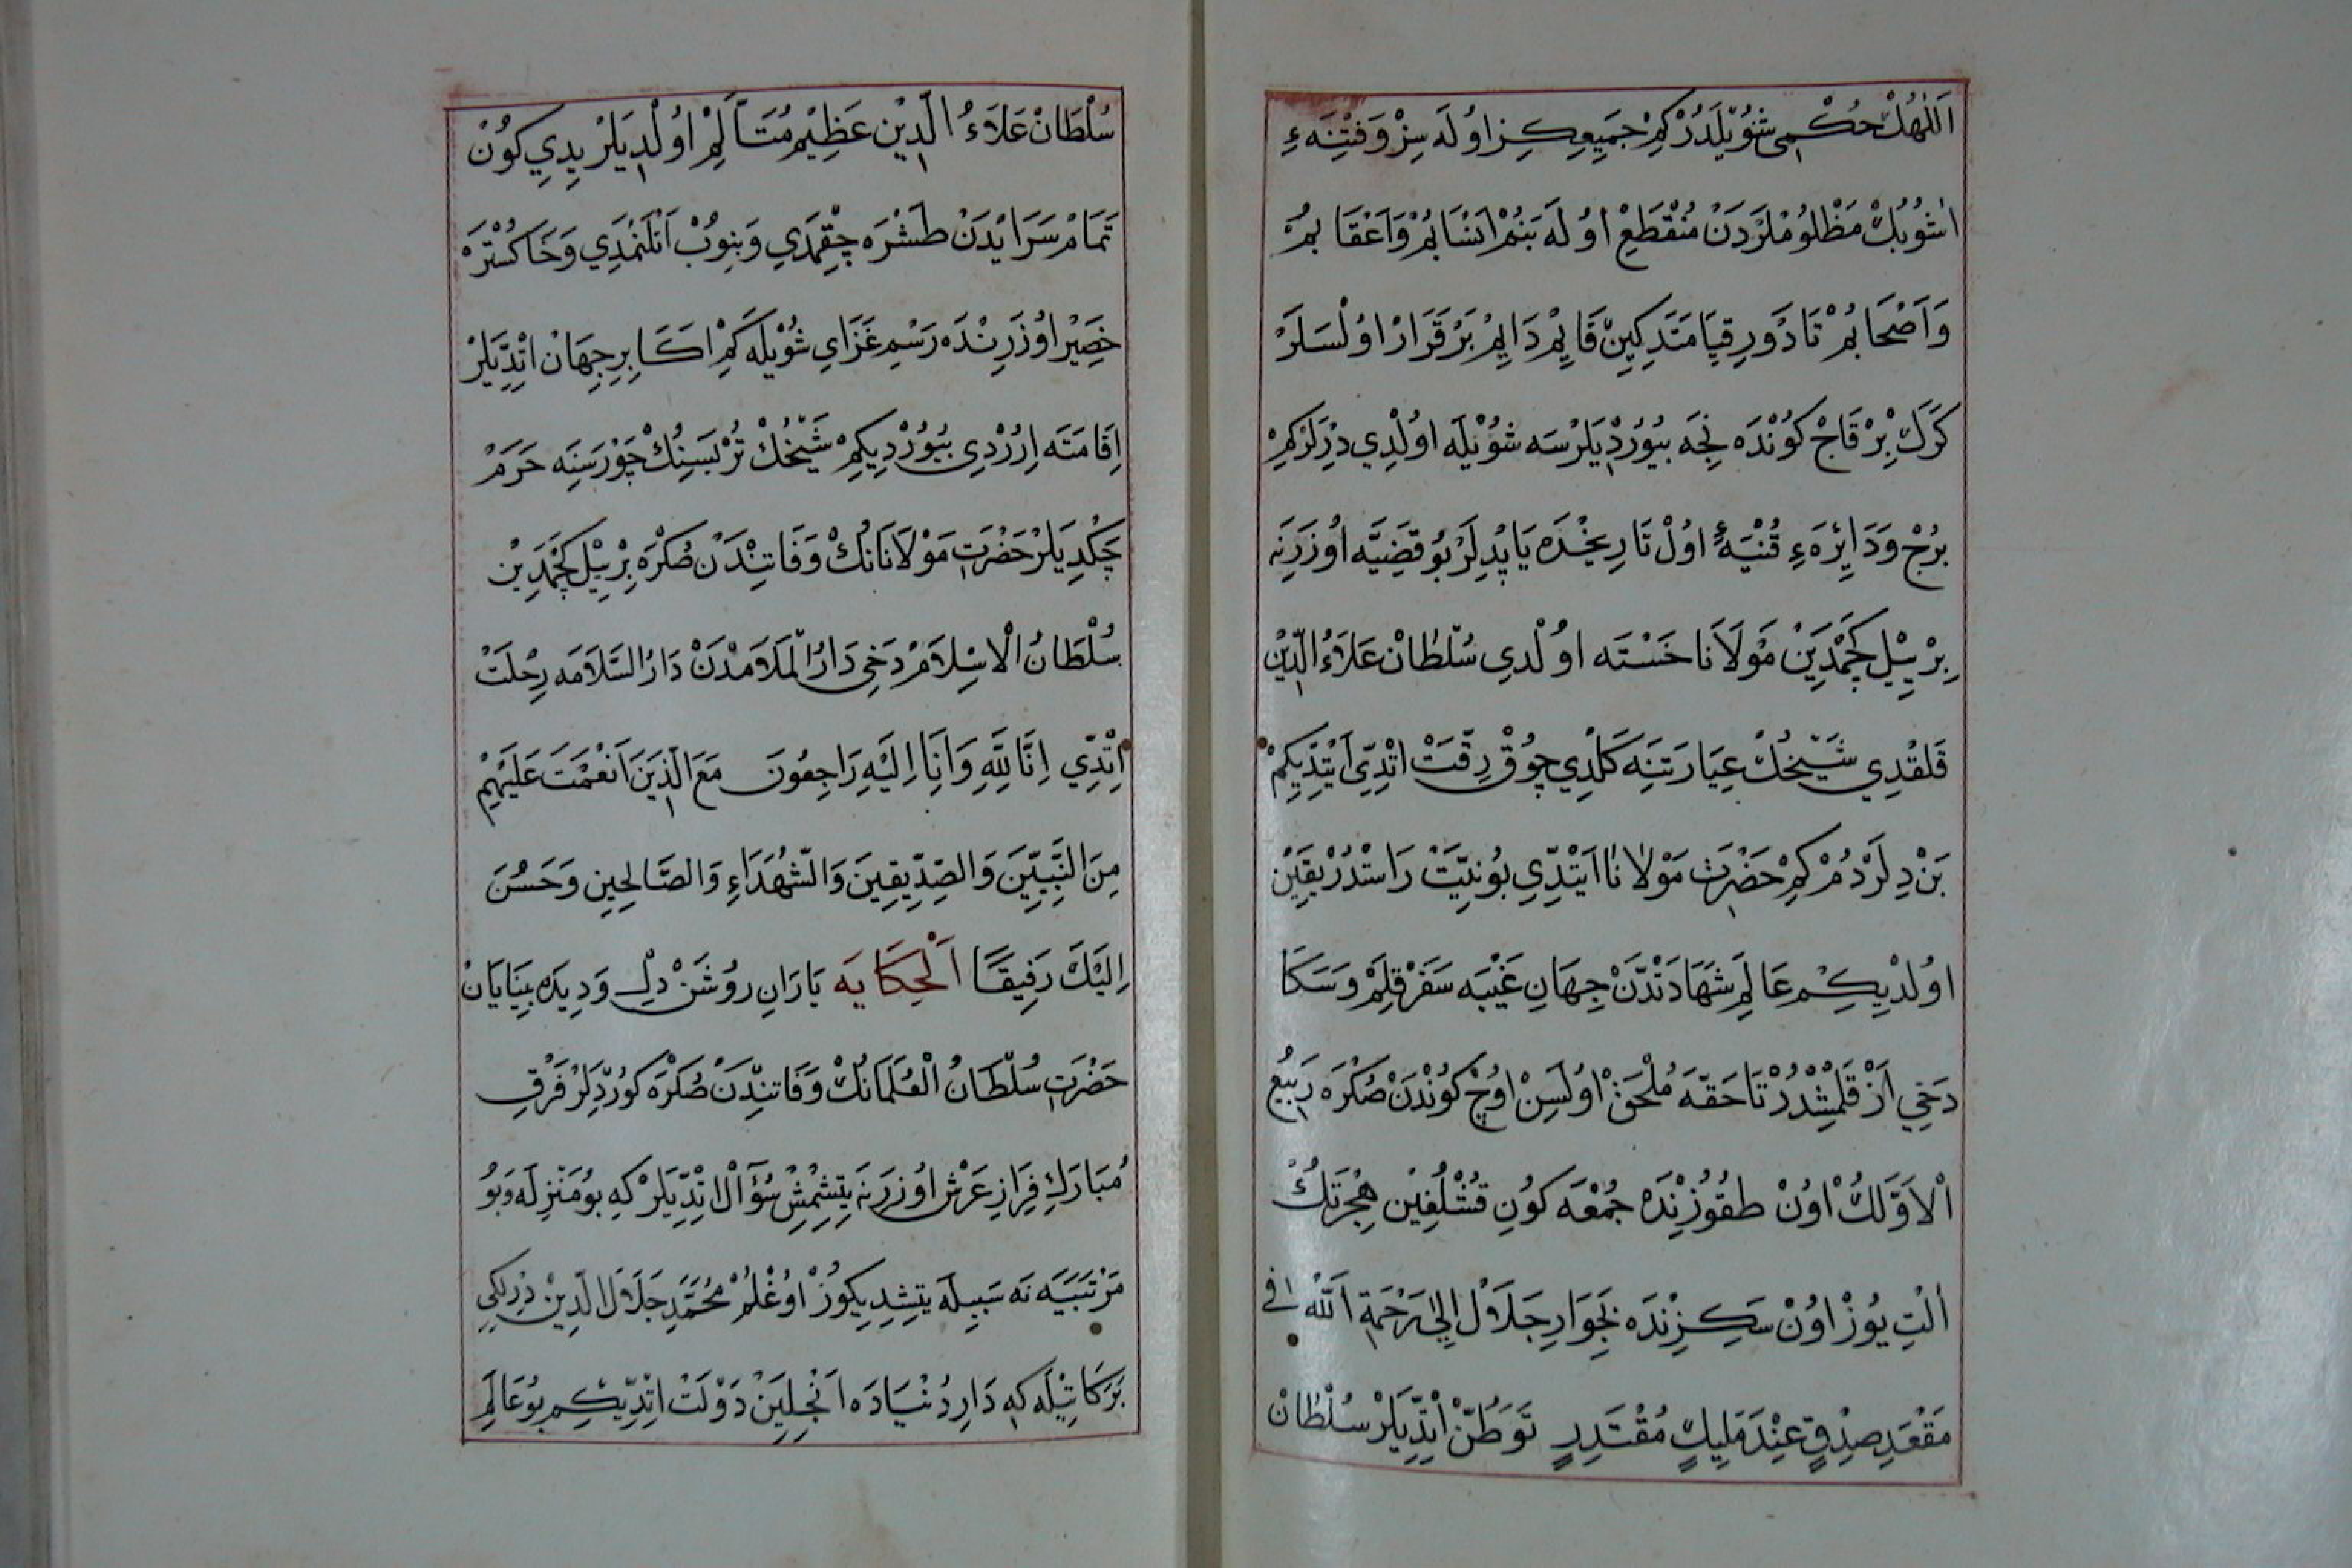 اَللّٰهُكْ حُكْمِى شُوُيْلَدُرْكِمْ جَمِيعِكِز اوُلَه سِزْ وَفِتْنَهءِ
اٰشُوبُكْ مَظْلُومْلَرْدَنْ مُنْقَطِعْ اوُلَه بَنُمْ اَنْسَابُمْ وَاَعْقَابُمْ
وَاَصْحَابُمْ تَا دَوْرِ قِيَامَتَدَكِينْ قَايِمْ دَايِمْ بَرْقَرَارْ اوُلْسَلَرْ
كَرَكْ بِرْ قَاجْ كوُنْدَه نِجَه بيُوُرْدِيلَرْسَه شوُيْلَه اوُلْدِي دِرْلَرْكِمْ
بُرْجْ وَدَايِرَهءِ قُنْيَهءِ اوُلْ تَارِيخْدَه يَاپْدِلَرْ بُو قَضِيَّه اوُزَرِنَه
بِرْ يِيْل كَچْمَدِينْ مَوْلَانَا خَسْتَه اوُلْدِي سُلْطَانْ عَلَاءُ الدِّينْ
قَلقْدِي شَيْخُكْ عِيَارَتِنَه كَلْدِي چوُقْ رِقَّتْ اتْدِي اَيِتْدِيكِمْ
بَنْ دِلَرْدُمْ كِمْ حَضْرَتِ مَوْلَانَا اَيِتْدِي بُو نِيَّتْ رَاسْتْدُرْ يَقِينْ
اوُلْدِيكِمْ عَالَمِ شَهَادَتْدَنْ جِهَانِ غَيْبَه سَفَرْ قِلَمْ وَسَكَا
دَخِي اَزْ قَلْمِشْدُرْ تَا حَقَّه مُلْحَقْ اوُلَسِنْ اوُچْ كوُنْدَنْ صُكْرَه رَبِيعُ
الْاَوَّلُكْ اوُنْ طقُوزُنْدَه جُمْعَه كوُنِ قُشْلُغِينْ هِجْرَتُكْ
اَلْتِ يوُزْ اوُنْ سَكِزِنْدَه بَجِوَارِ جَلَالْ اِلٰي رَحْمَةِ اللّٰه في
مَقْعَدِ صِدْقٍ عِنْدَ مَلِيكٍ مُقْتَدِرٍ تَوَطُّنْ اِتْدِيلَرْ سُلْطَانْ
سُلْطَانْ عَلَاءُ الدِّينْ عَظِيمْ مُتَأَلِّمْ اوُلْدِيلَرْ يِدِي كوُنْ
تَمَامْ سَرَايْدَنْ طَشْرَه چِقْمَدِي وَبِنوُبْ اَتْلَنْمَدِي وَخَاكُسْتَرَه
حَصِيرْ اوُزَرِنْدَه رَسْمِ عَزَاي شُوُيْلَه كِمْ اكَابِرِ جِهَانْ اِتْدِيلَرْ
اِقَامَتَه اِرُرْدِي بُيُورْدِيكِمْ شَيْخُكْ تُرْبَسِنُكْ چَوْرَسِنَه حَرَمْ
چَكْدِيلَرْ حَضْرَتِ مَوْلَانَانُكْ وَفَاتِنْدَنْ صُكْرَه بِرْ يِيْل كَچْمَدِينْ
سُلْطَانُ الْاِسْلَامْ دَخِي دَارُ الْمَلَامَدْنْ دَارُ السَّلَامَه رِحْلَتْ
اِتْدِي اِنَّا لِلّٰهِ وَاِنَّا اِلَيْهِ رَاجِعُونَ مَعَ الَّذِينَ اَنْعَمْتَ عَلَيْهِمْ
مِنَ النَّبِيِّينَ وَالصِّدِّيقِينَ وَالشُّهَدَاءِ وَالصَّالِحِينَ وَحَسُنَ
اِلَيْكَ رَفِيقًا اَلْحِكَايَه يَارَانِ رُوشَنْ دِلْ وَدِيدَه بِينَايَانْ
حَضْرَتِ سُلْطَانُ الْعُلَمَانُكْ وَفَاتِنْدَنْ صُكْرَه كوُرْدِلَرْ فَرْقِ
مُبَارَكِ فِرَازِ عَرْشْ اوُزَرِنَه يَتِشْمِشْ سُؤَالْ اتْدِيلَرْ كِه بُو مَنْزِلَه وَبُو
مَرْتَبَيَه نَه سَبِيلَه يَتِشْدِيكوُزْ اوُغْلُمْ مُحَمَّدِ جَلَالَ الدِّينْ دِرْلِكِي
بَرَكَاتِيْلَه كِه دَارِ دُنْيَادَه اَنْجِلَيِنْ دَوْلَتْ اِتْدِيكِمْ بُو عَالَمِ